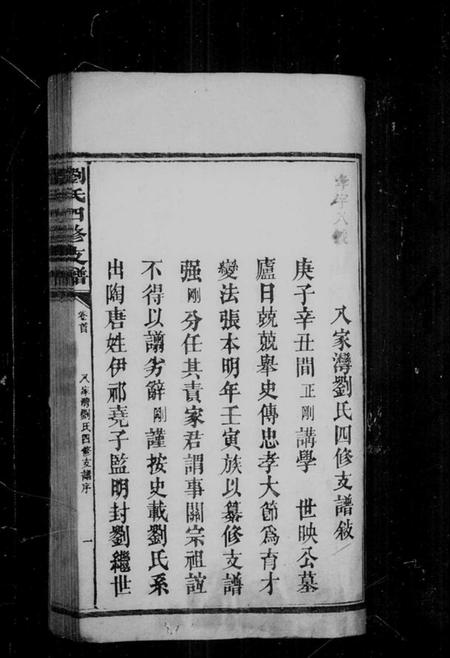 又家灣劉氏四修支譜敍
庚子辛丑間正剛講學 世映公墓
廬日兢兢舉史傳忠孝大節為育才
變法張本明年壬寅族以纂修支譜
强剛分任其責家君謂事關宗祖誼
不得以譾劣辭剛謹按史載劉氏系
出陶唐姓伊祁堯子監明封劉繼世
劉氏四修支譜
卷首
又家灣劉氏四修支譜序
一